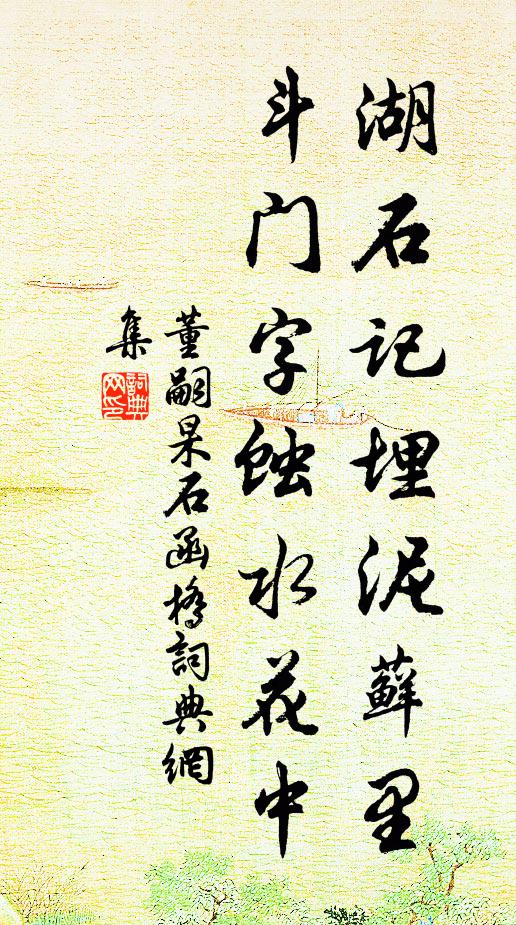 湖石记埋泥藓里
斗门字蚀水花中
董嗣杲石函桥词典網
集
詞典
网印